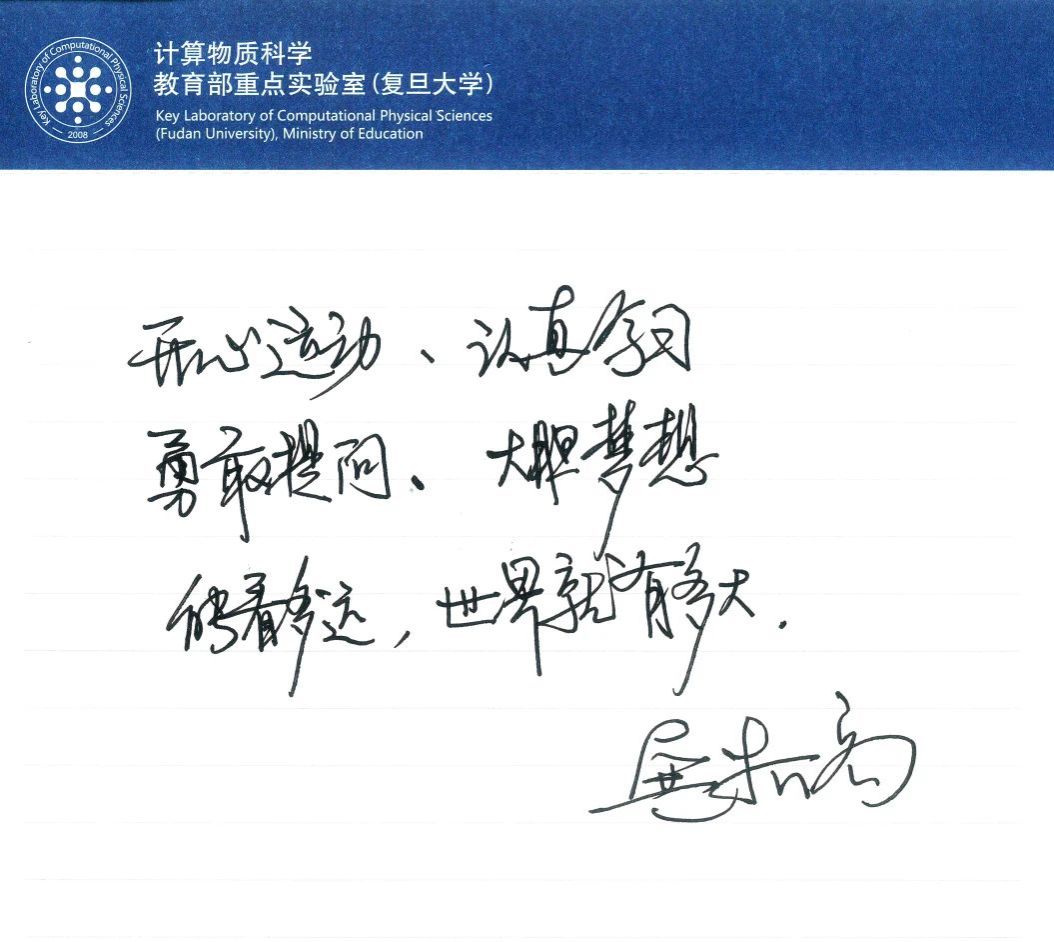 Key Laboratory of Computational Physical Sciences
2008
计算物质科学
教育部重点实验室(复旦大学)
Key Laboratory of Computational Physical Sciences
(Fudan University), Ministry of Education
开心运动、认真学习
勇敢提问、大胆梦想
能看多远，世界就有多大.